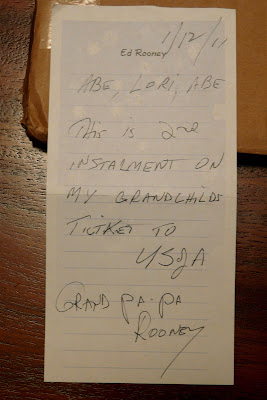 Ed Rooney
1/12/11
ABE, LORI, ABE
This is 2nd
INSTALMENT ON
MY GRANDCHILDS
TICKET TO
USofA
GRAND PA-PA
ROONEY